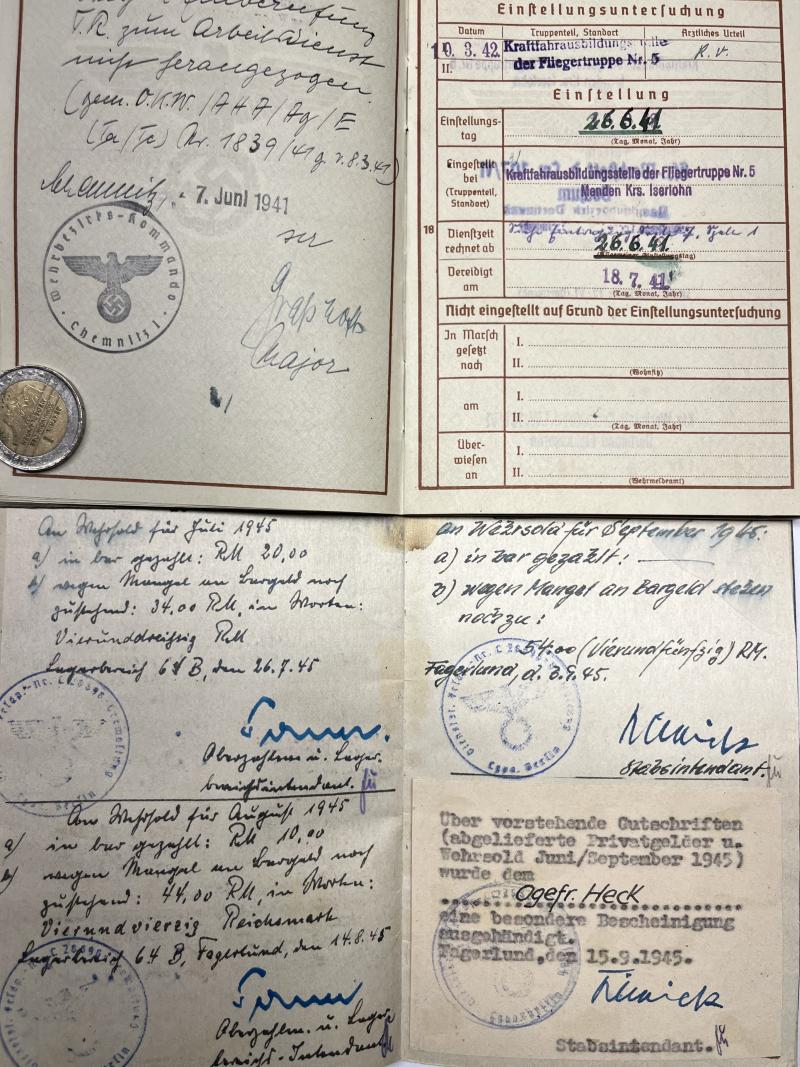 T.R. zum Arbeitsdienst
nicht herangezogen.
(gem. O.K.W./AHA/Ag/E
(Ia/Ic) Nr. 1839/41 g.v. 8.3.41)
Chemnitz, - 7. Juni 1941
Wehrbezirks-Kommando
Chemnitz I
Major
Einstellungsuntersuchung
Datum Truppenteil, Standort Ärztliches Urteil
10. 3. 42. Kraftfahrausbildungsstelle
der Fliegertruppe Nr. 5
II.
Einstellung
Einstellungstag
26.6.41
(Tag, Monat, Jahr)
Eingestellt
bei
(Truppenteil,
Standort)
Kraftfahrausbildungsstelle der Fliegertruppe Nr. 5
Menden Krs. Iserlohn
18
Dienstzeit
rechnet ab
26.6.41.
Vereidigt
am
18.7.41
(Tag, Monat, Jahr)
Nicht eingestellt auf Grund der Einstellungsuntersuchung
In Marsch
gesetzt
nach
I.
II.
(Wohnsitz)
am
I.
II.
(Tag, Monat, Jahr)
Über-
wiesen
an
I.
II.
(Wehrmeldeamt)
An Wehrsold für Juli 1945
a) in bar gezahlt: RM 20,00
b) wegen Mangel an Bargeld noch
zustehend: 34.00 RM, in Worten:
Vierunddreißig RM
Lagerbereich 64 B, den 26.7.45
Oberzahlm. u. Lager-
bereichsintendant.
An Wehrsold für August 1945
a) in bar gezahlt: RM 10,00
b) wegen Mangel an Bargeld noch
zustehend: 44,00 RM, in Worten:
Vierundvierzig Reichsmark
Lagerbereich 64 B, Fagerlund, den 14.8.45
Oberzahlm. u. Lager-
bereichs-Intendant
An Wehrsold für September 1945:
a) in bar gezahlt:
b) wegen Mangel an Bargeld stehen
noch zu:
54.00 (Vierundfünfzig) RM.
Fagerlund, d. 3.9.45.
Stabsintendant.
Über vorstehende Gutschriften
(abgelieferte Privatgelder u.
Wehrsold Juni/September 1945)
wurde dem
Ogefr. Heck
eine besondere Bescheinigung
ausgehändigt.
Fagerlund, den 15.9.1945.
Stabsintendant.